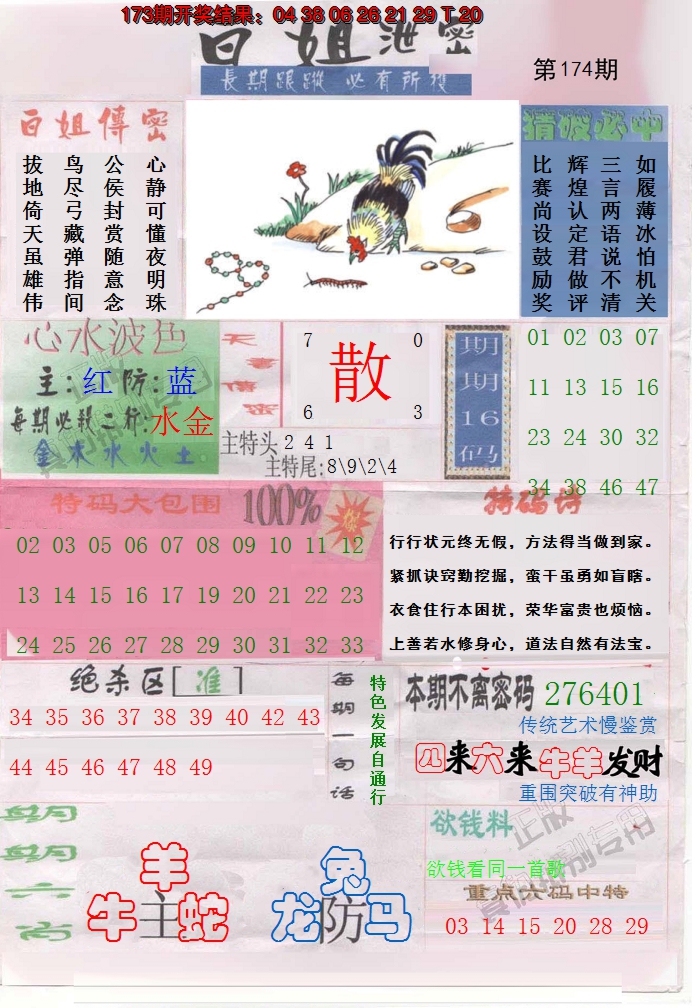 173期开奖结果：04 38 06 26 21 29 T 20
白姐泄密
第174期
長期跟蹤 必有所獲
白姐傳密
心静可懂夜明珠
公侯封赏随意念
鸟尽弓藏弹指间
拔地倚天虽雄伟
猜彼必中
如履薄冰怕机关
三言两语说不清
辉煌认定君做评
比赛尚设鼓励奖
心水波色
主：红 防：蓝
每期必殺二行：水金
金木水火土
天書情密
7 0
散
6 3
主特头 2 4 1
主特尾：8\9\2\4
期期16码
01 02 03 07
11 13 15 16
23 24 30 32
34 38 46 47
特码大包围 100%
02 03 05 06 07 08 09 10 11 12
13 14 15 16 17 19 20 21 22 23
24 25 26 27 28 29 30 31 32 33
特码诗
行行状元终无假，方法得当做到家。
紧抓诀窍勤挖掘，蛮干虽勇如盲瞎。
衣食住行本困扰，荣华富贵也烦恼。
上善若水修身心，道法自然有法宝。
绝杀区[准]
34 35 36 37 38 39 40 42 43
44 45 46 47 48 49
每期一句话
特色发展自通行
本期不离密码 276401
传统艺术慢鉴赏
四来六来牛羊发财
重围突破有神助
每期六肖
羊
牛主蛇
兔
龙防马
欲钱料
欲钱看同一首歌
重点六码中特
03 14 15 20 28 29